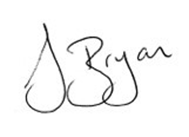 J Bryan